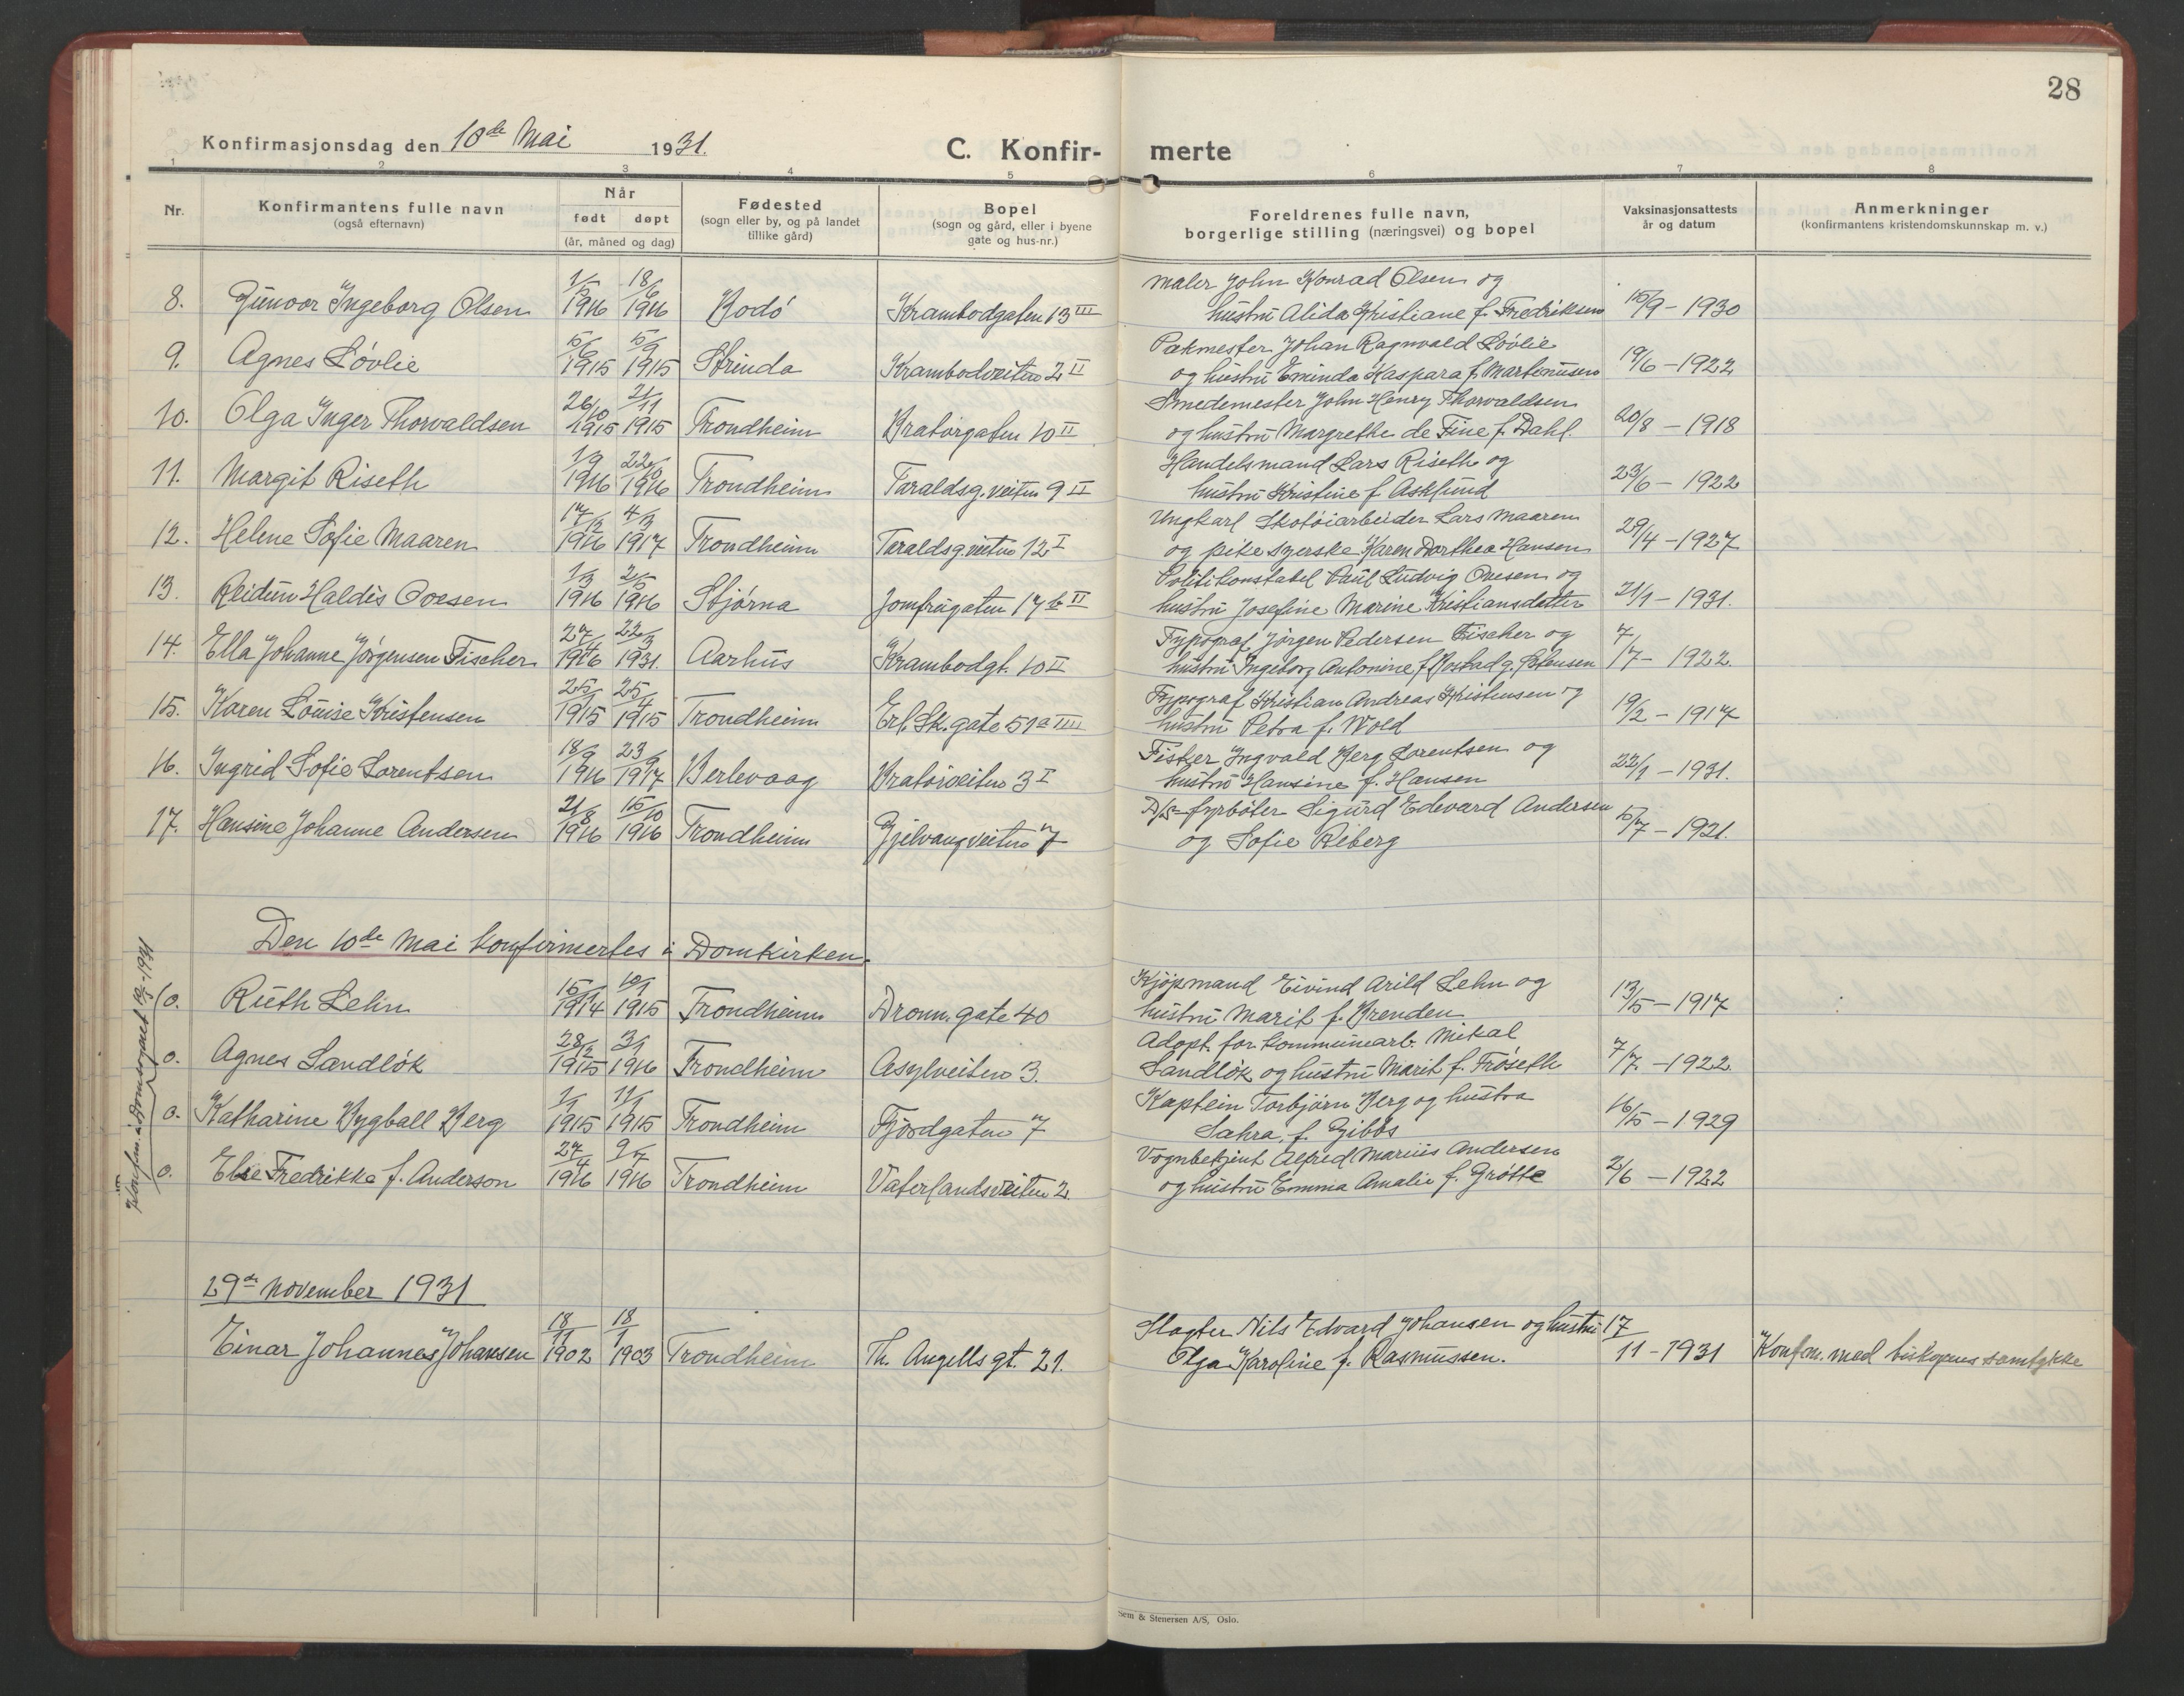 28
Konfirmasjonsdag den 10de Mai 1931.
C. Konfir- merte
1 2 3 4 5 6 7 8
Nr.
Konfirmantens fulle navn
(også efternavn)
Når
født døpt
(år, måned og dag)
Fødested
(sogn eller by, og på landet
tillike gård)
Bopel
(sogn og gård, eller i byene
gate og hus-nr.)
Foreldrenes fulle navn,
borgerlige stilling (næringsvei) og bopel
Vaksinasjonsattests
år og datum
Anmerkninger
(konfirmantens kristendomskunnskap m. v.)
8. Gunvor Ingeborg Olsen 1/5 1916 18/6 1916 Bodö Krambodgaten 13 III Maler John Konrad Olsen og
hustru Alida Kristiane f. Fredriksen 15/9 - 1930
9. Agnes Lövlie 5/6 1915 5/9 1915 Strinda Krambodveiten 2 II Pakmester Johan Ragnvald Lövlie
og hustru Eminda Kaspara f. Martinusen 19/6 - 1922
10. Olga Inger Thorvaldsen 26/10 1915 21/11 1915 Trondheim Bratörgaten 10 II Smedemester John Henry Thorvaldsen
og hustru Margrethe de Fine f. Dahl. 20/8 - 1918
11. Margit Riseth 1/9 1916 22/10 1916 Trondheim Taraldsg.veiten 9 II Handelsmand Lars Riseth og
hustru Kristine f. Asklund 23/6 - 1922
12. Helene Sofie Maaren 17/12 1916 4/3 1917 Trondheim Taraldsgveiten 12 I Ungkarl Skotöiarbeider Lars Maaren
og pike syerske Karen Dorthea Hansen 29/4 - 1927
13. Reidun Haldis Ovesen 1/3 1916 2/5 1916 Stjörna Jomfrugaten 17 b II Politikonstabel Paul Ludvig Ovesen og
hustru Josefine Marine Kristiansdatter 21/1 - 1931.
14. Ella Johanne Jörgensen Fischer 27/4 1916 22/3 1931. Aarhus Krambodgt. 10 II Typograf Jörgen Pedersen Fischer og
hustru Ingeborg Antonine f. 7/7 - 1922.
15. Karen Louise Kristensen 25/1 1915 25/4 1915 Trondheim Erl. Sk. gate 51a IIII Typograf Kristian Andreas Kristensen og
hustru Petra f. Wold 19/2 - 1917
16. Ingrid Sofie Lorentsen 18/9 1916 23/9 1917 Berlevaag Bratörveiten 3 I Fisker Ingvald Berg Lorentsen og
hustru Hansine f. Hansen 22/1 - 1931.
17. Hansine Johanne Andersen 21/8 1916 15/10 1916 Trondheim Gjelvangveiten 7 D/S-fyrböter Sigurd Edevard Andersen
og Sofie Riberg 15/7 - 1921.
Den 10de Mai konfirmertes i Domkirken.
Konfirm. i Domsognet 10/5 - 1931
o. Ruth Lehn 15/11 1914 10/1 1915 Trondheim Dronn. gate 40 Kjöpmand Eivind Arild Lehn og
hustru Marit f. Brenden 13/5 - 1917
o. Agnes Sandlök 28/12 1915 3/1 1916 Trondheim Asylveiten 3. Adopt. for. kommunearb. Mikal
Sandlök og hustru Marit f. Fröseth 7/7 - 1922.
o. Katharine Bygball Berg 1/1 1915 11/1 1915 Trondheim Fjordgaten 7 Kaptein Torbjörn Berg og hustru
Sahra, f. Gibbs 16/5 - 1929
o. Else Fredrikke f. Anderson 27/4 1916 9/7 1916 Trondheim Vaterlandsveiten 2. Vognbetjent Alfred Marius Andersen
og hustru Emma Amalie f. Grötte 2/6 - 1922
29de November 1931
Einar Johannes Johansen 18/11 1902 18/1 1903 Trondheim Th. Angells gt. 21. Slagter Nils Edvard Johansen og hustru
Olga Karoline f. Rasmussen. 17/11 - 1931 Konfm. med biskopens samtykke
Sem & Stenersen A/S, Oslo.